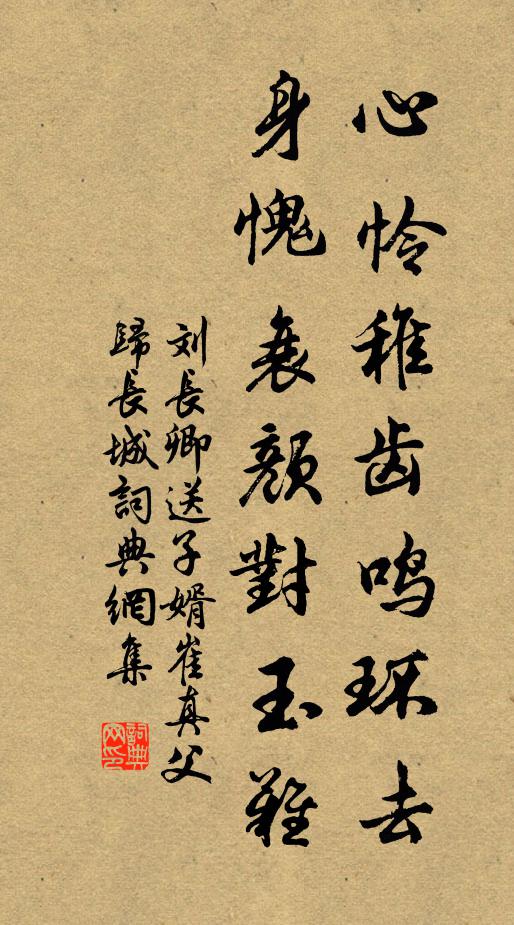 心怜稚齿鸣环去
身愧衰颜對玉難
刘長卿送子婿崔真父
歸長城詞典網集
詞典网印